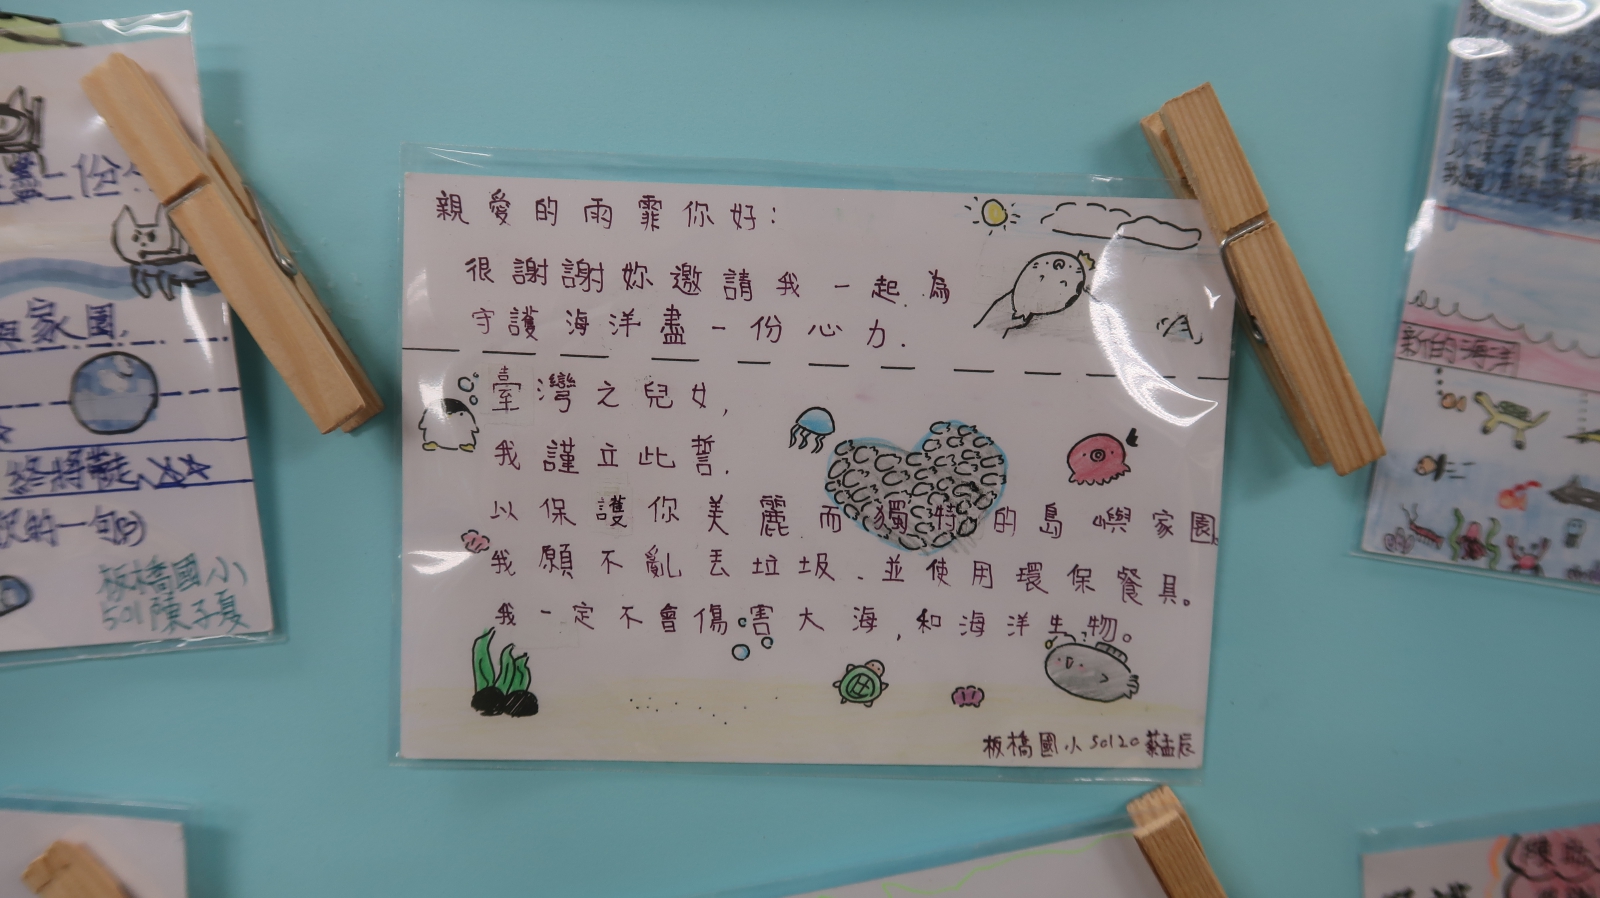 親愛的雨霏你好：
很謝謝妳邀請我一起.為
守護海洋盡一份心力.
臺灣之兒女,
我謹立此誓.
以保護你美麗而獨特的島嶼家園.
我願不亂丟垃圾.並使用環保餐具。
我一定不會傷害大海,和海洋生物。
板橋國小50120蘇孟辰
盡一份
與家園.
的一句
板橋國小
501陳子夏
新的海洋